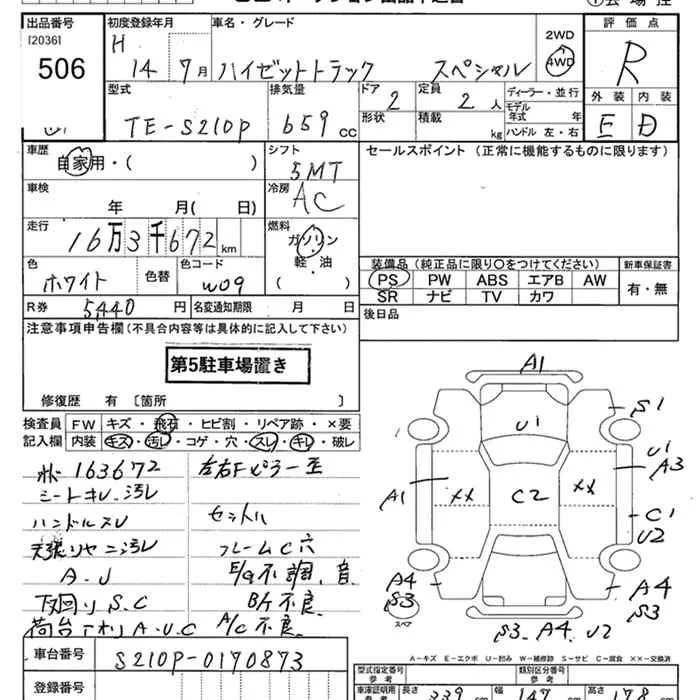 出品番号 初度登録年月 車名・グレード 2WD 評価点
[2036]
506
H 14 7月 ハイゼットトラック スペシャル 4WD R
型式 排気量 ドア 定員 ディーラー・並行 外装 内装
TE-S210P 659 cc 2 2 人 モデル年式 年 E D
形状 積載 kg ハンドル 左・右
車歴 シフト セールスポイント(正常に機能するものに限ります)
自家用・( ) 5MT
車検 冷房
年 月( 日) AC
走行 燃料
16万3千672 km ガソリン
軽・油
( )
色 色替 色コード
ホワイト W09
装備品(純正品に限り○をつけてください) 新車保証書
PS PW ABS エアB AW 有・無
SR ナビ TV カワ
R券 5,440 円 名変通知期限 月 日 後日品
注意事項申告欄(不具合内容等は具体的に記入して下さい)
第5駐車場置き
修復歴 有〔箇所 〕
検査員 FW キズ・飛石・ヒビ割・リペア跡・×要
記入欄 内装 キズ・汚レ・コゲ・穴・スレ・キレ・破レ
163672 左右Fピラー歪
シートキレ.汚レ
ハンドルスレ
フレームC穴
A.U E/g不調、音
下回りS.C
荷台 A.U.C A/C不良
A1
U1
S1
U1
A3
A1
XX
C2
XX
C1
U2
A4
S3
スペア
A4
S3
S3.A4.U2
A-キズ E-エクボ U-凹み W-補修跡 S-サビ C-腐食 XX-交換済
車台番号 S210P-0170873
登録番号
型式指定番号 参考 類別区分番号 参考
車庫証明用 参考 長さ 339 cm 幅 147 cm 高さ 178 cm